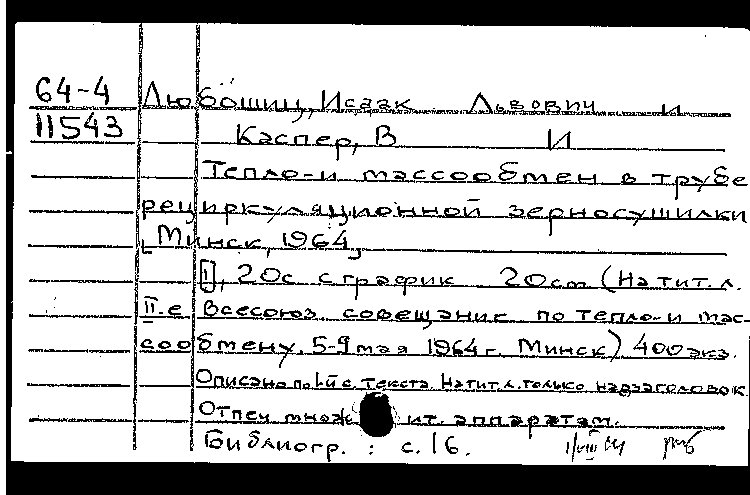 64-4 Любошиц, Исаак Львович и
11543 Каспер, В И
Тепло-и массообмен в трубе
рециркуляционной зерносушилки
[Минск, 1964]
[1], 20с с график 20см (На тит. л.
II-е Всесоюз. совещание по тепло-и мас-
сообмену. 5-9 мая 1964 г. Минск) 400 экз.
Описано по 1-й с. текста. На тит. л. только надзаголовок
Отпеч множ ит. аппаратам.
Библиогр. : с. 16.